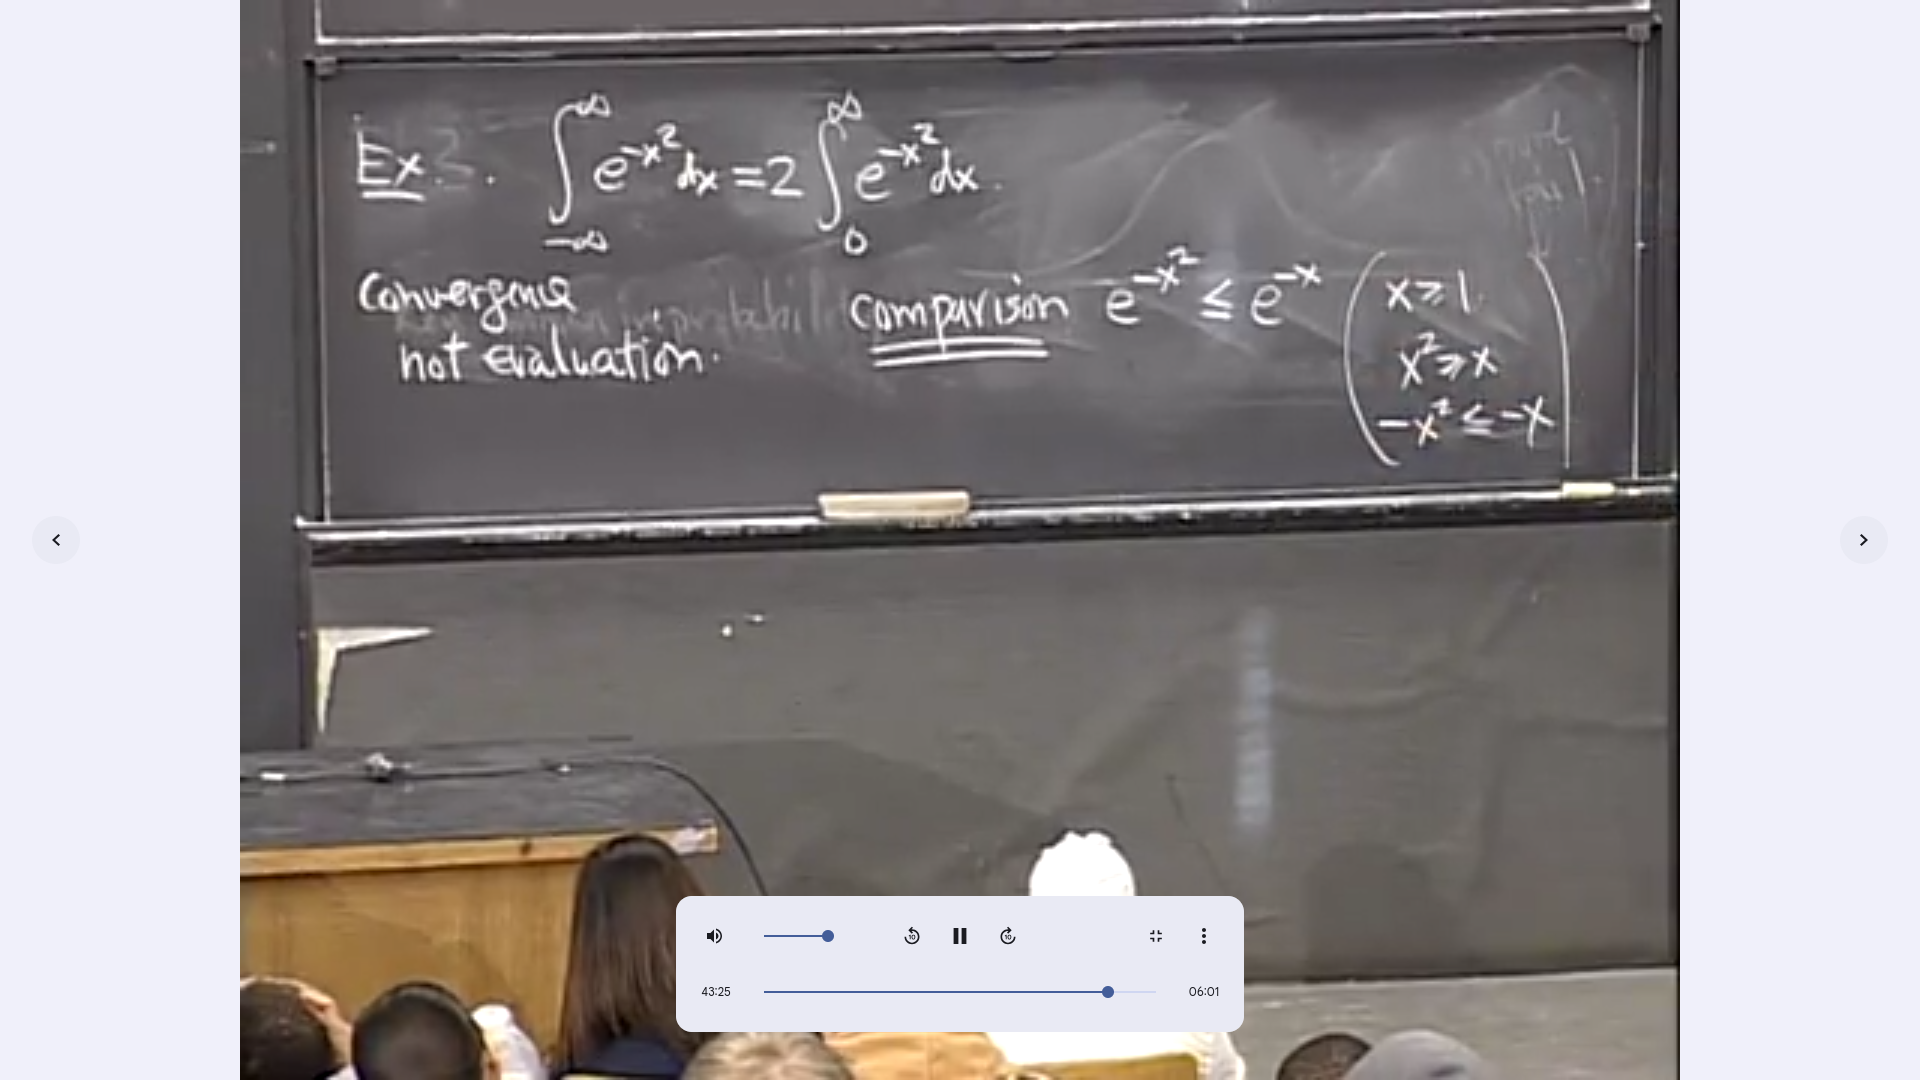 Ex. ∫_{-∞}^{∞} e^{-x²} dx = 2 ∫_{0}^{∞} e^{-x²} dx.
Convergence
not evaluation.
comparison e^{-x²} ≤ e^{-x}
( x ≥ 1.
x² ≥ x
-x² ≤ -x )
10
10
43:25
06:01